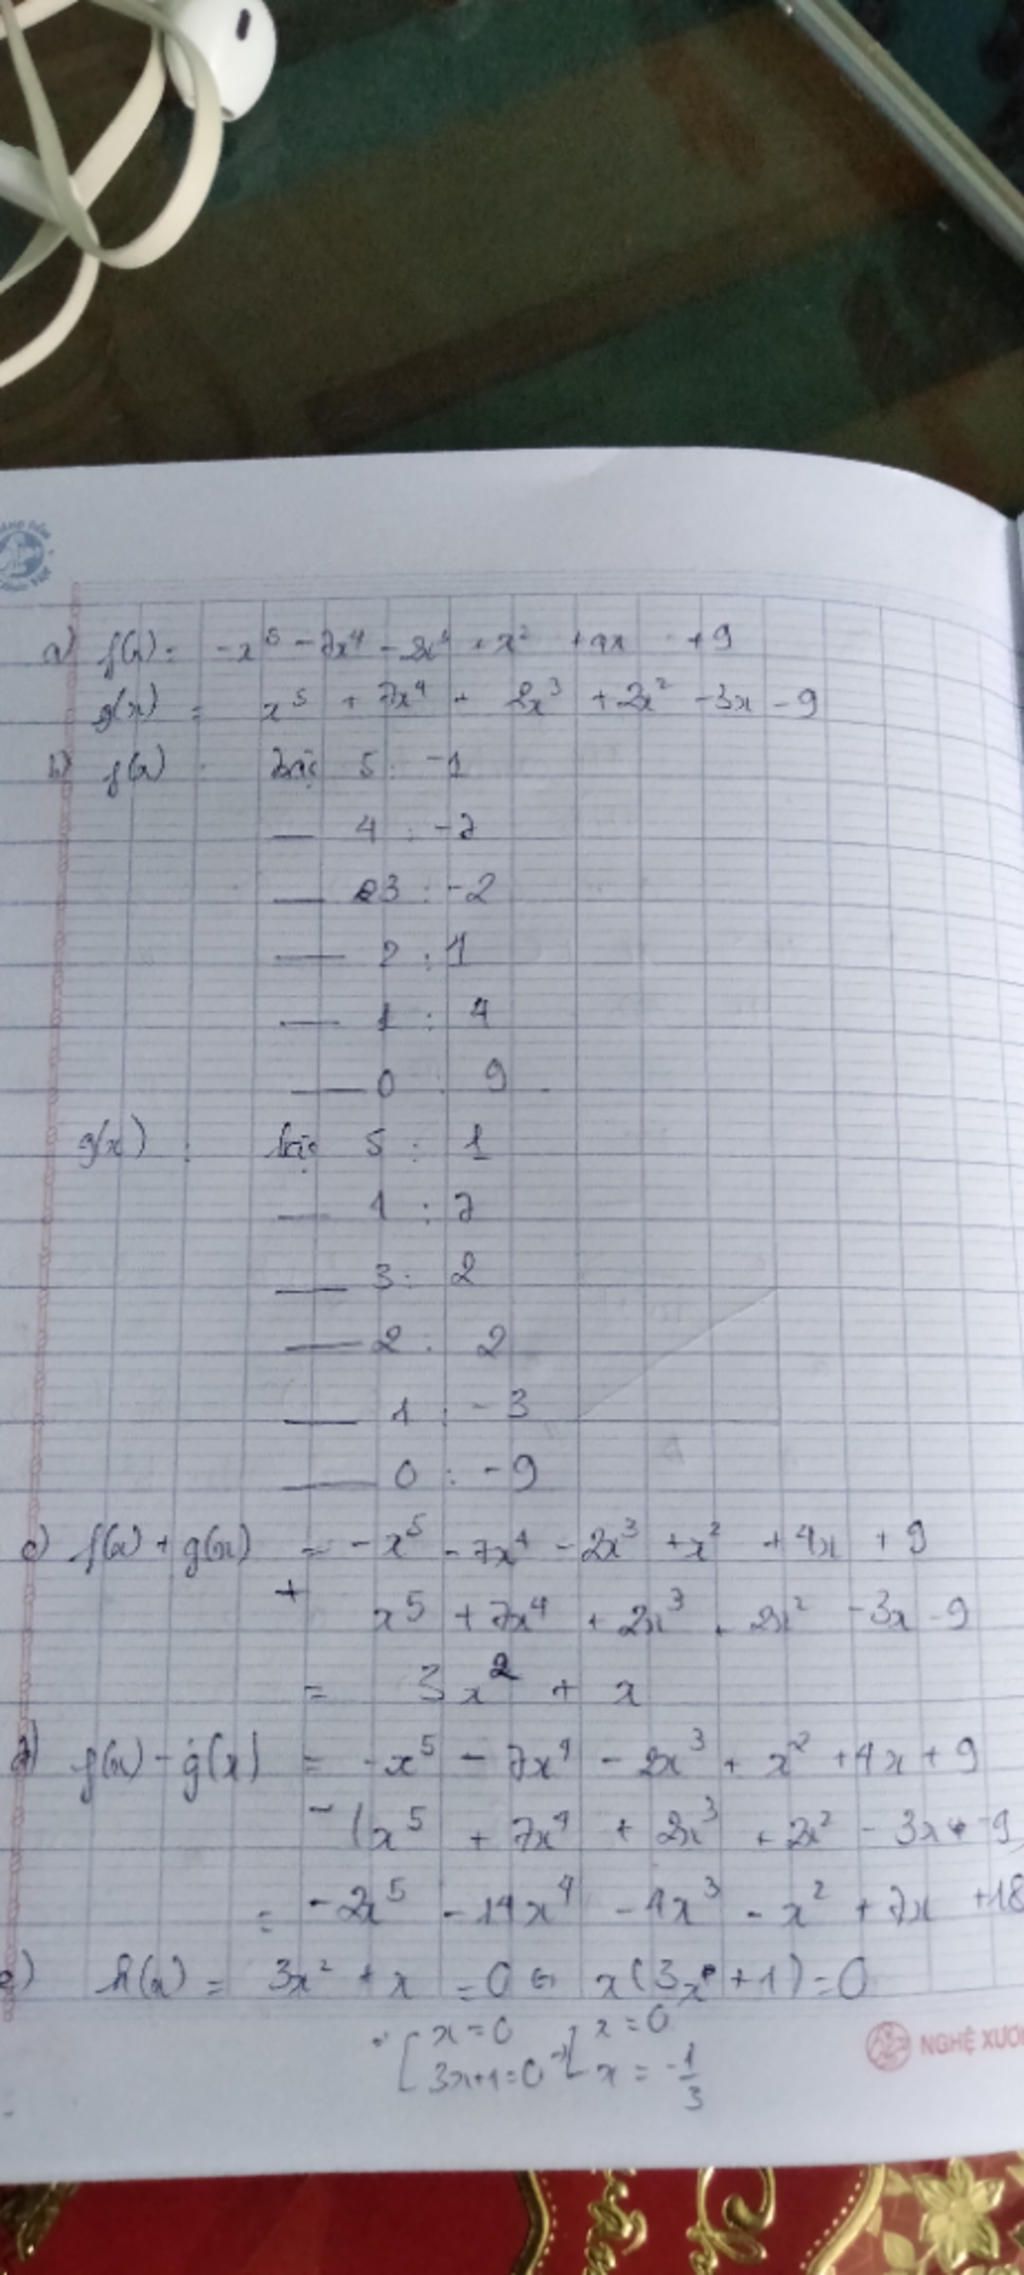 a) f(x) = -x⁵ - 7x⁴ - 2x³ + x² + 4x + 9
g(x) = x⁵ + 7x⁴ + 2x³ + 2x² - 3x - 9
b) f(x) : bậc 5 : -1
— 4 : -7
— 3 : -2
— 2 : 1
— 1 : 4
— 0 : 9
g(x) : bậc 5 : 1
— 4 : 7
— 3 : 2
— 2 : 2
— 1 : -3
— 0 : -9
c) f(x) + g(x) = -x⁵ - 7x⁴ - 2x³ + x² + 4x + 9
+ x⁵ + 7x⁴ + 2x³ + 2x² - 3x - 9
= 3x² + x
d) f(x) - g(x) = -x⁵ - 7x⁴ - 2x³ + x² + 4x + 9
- (x⁵ + 7x⁴ + 2x³ + 2x² - 3x - 9
= -2x⁵ - 14x⁴ - 4x³ - x² + 7x + 18
e) h(x) = 3x² + x = 0 ⇔ x(3x + 1) = 0
[ x = 0 [ x = 0
3x+1=0 x = -1/3
NGHỆ XƯƠ